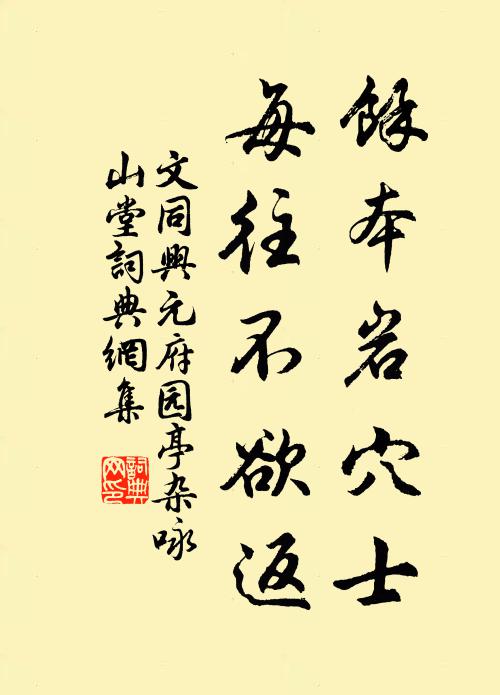 餘本岩穴士
每往不欲返
文同興元府园亭杂咏
山堂詞典網集
詞典
网印